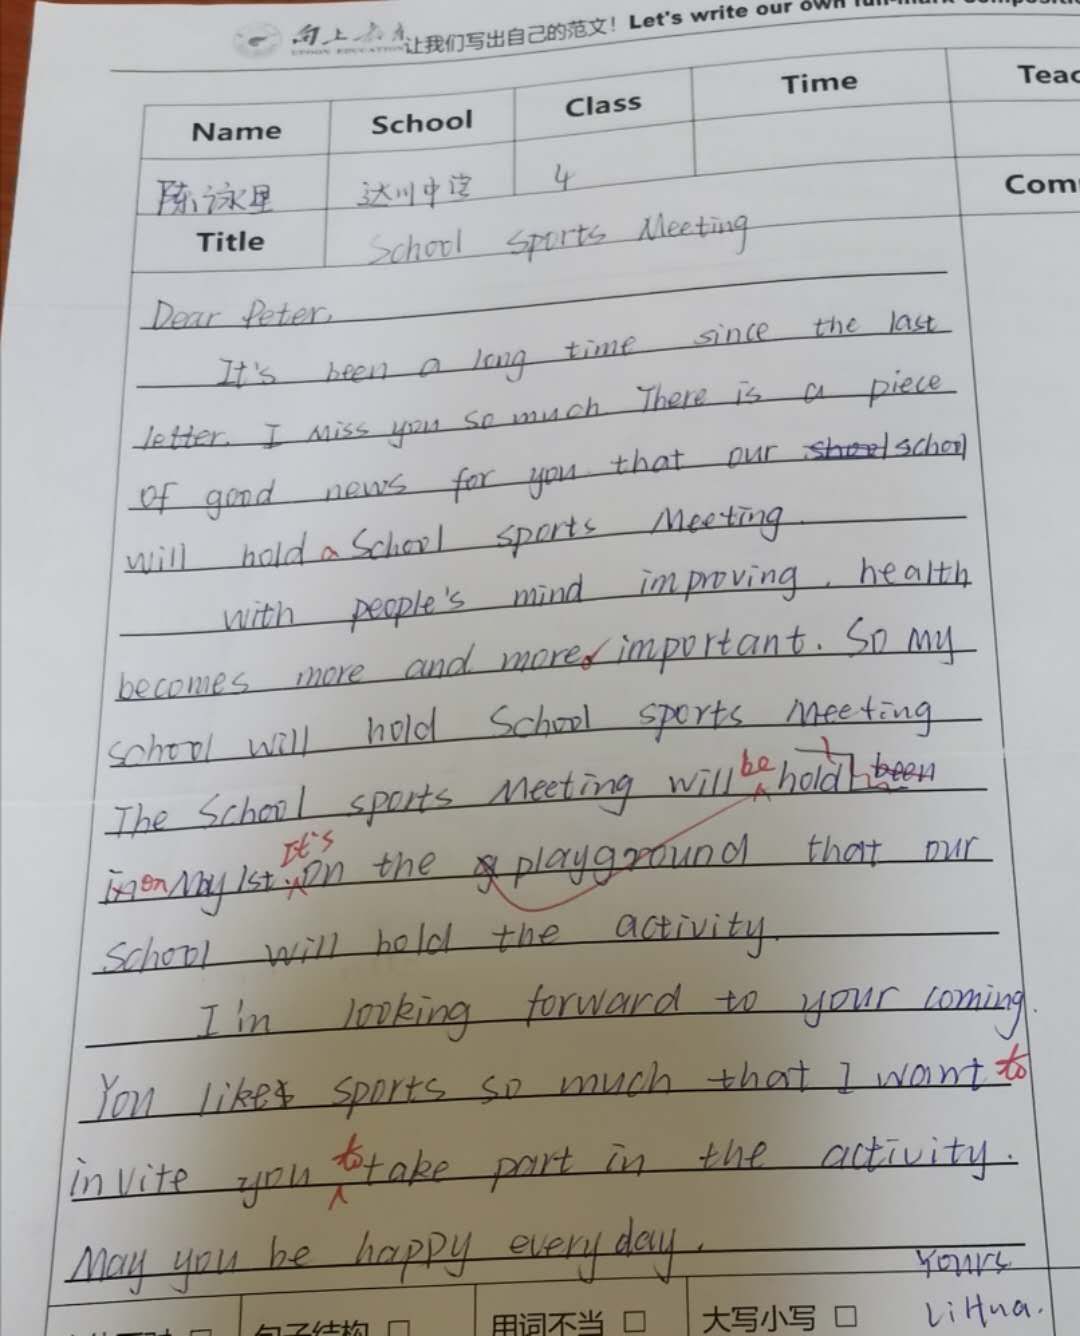 向上教育 UPDON EDUCATION 让我们写出自己的范文! Let's write our own
Name School Class Time
陈泳里 达川中学 4
Title School sports Meeting
Dear Peter,
It's been a long time since the last
letter. I miss you so much There is a piece
of good news for you that our school
will hold a School sports Meeting.
with people's mind improving, health
becomes more and more important. So my
school will hold School sports Meeting
The School sports Meeting will be hold been
in on May 1st. It's on the playground that our
school will hold the activity.
I'm looking forward to your coming.
You likes sports so much that I want to
invite you to take part in the activity.
May you be happy every day.
Yours
LiHua.
句子结构 □ 用词不当 □ 大写小写 □